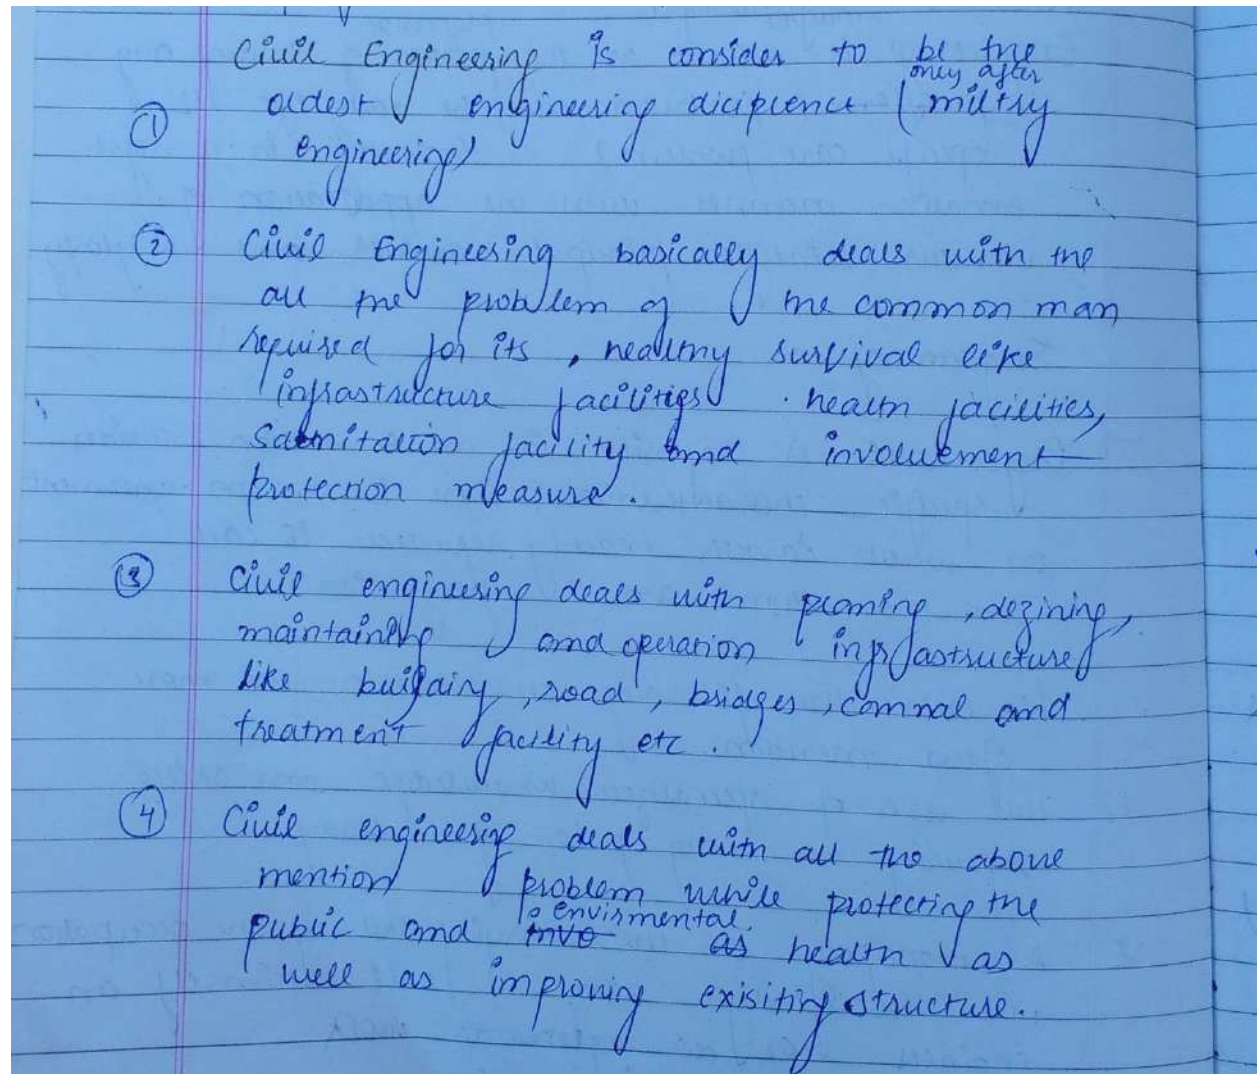 Civil Engineering is consider to be the
oldest engineering diciplence (only after miltry
engineering)
① 
② Civil Engineering basically deals with the
all the problem of the common man
required for its, healthy survival like
infrastructure facilities. health facilities,
sanitation facility and involvement
protection measure.
③ Civil engineering deals with planing, dezining,
maintaining and operation infrastructure
like building, road, bridges, comnal and
treatment facility etc.
④ Civil engineering deals with all the above
mention problem while protecting the
public and environmental health as
well as improving exisiting structure.